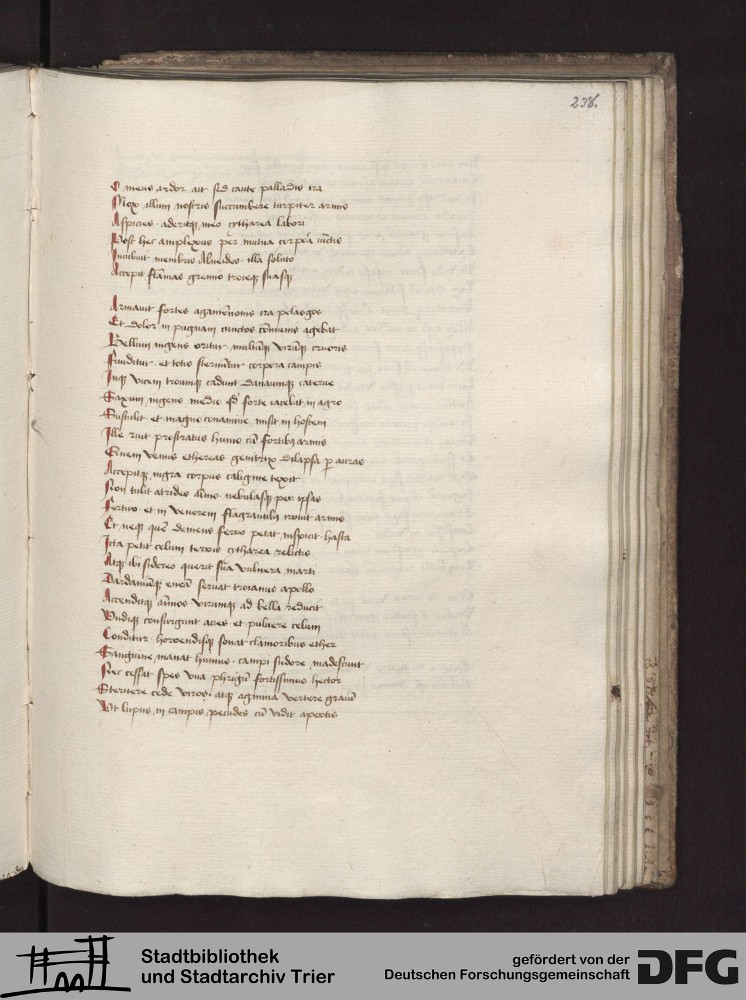 238.
O meus ardor ait sed caute palladis ira
Mox illum nostris succumbere turpiter armis
Aspicies aderitq; meo cytharea labori
Post hec amplexus per mutua corpora iu͞ctis
Incubuit membris Atreides illa soluto
Accepit fla͞mas gremio troieq; suasq;
Armauit fortes agame͞nonis ira pelasgos
Et dolor in pugnam cunctos co͞munis agebat
Bellum ingens oritur multu͞q; viru͞q; cruoris
Funditur et totis sternu͞tur corpora campis
Inq; vicem troumq; cadunt danaumq; caterue
Saxum ingens medio qd͛ forte iacebat in agro
Sustulit et magno conamine misit in hostem
Ille ruit prostratus humo cu͞ fortibq armis
Quem venus ethereas genitrix dilapsa p auras
Accepitq; nigra corpus caligine texit
Non tulit atrides a͞imo nebulasq; per ipsas
Fertur et in venerem flagrantibq irruit armis
Et neq; que͞ demens ferro petat inspicit hasta
Icta petit celum terris cytharea relictis
Atq; ibi sidereo querit sua vulnera marti
Dardaniu͞q; enea͞ seruat troianus apollo
Accenditq; a͞imos virumq; ad bella reducit
Vndiq; consurgunt acies et puluere celum
Conditur horrendisq; sonat clamoribus ether
Sanguine manat humus campi sudore madescunt
Nec cessat spes vna phrigu͞ fortissimus hector
Sternere cede viros atq; agmina vertere graiu͞
Vt lupus in campis pecudes cu͞ vidit apertis
Stadtbibliothek
und Stadtarchiv Trier
gefördert von der
Deutschen Forschungsgemeinschaft
DFG